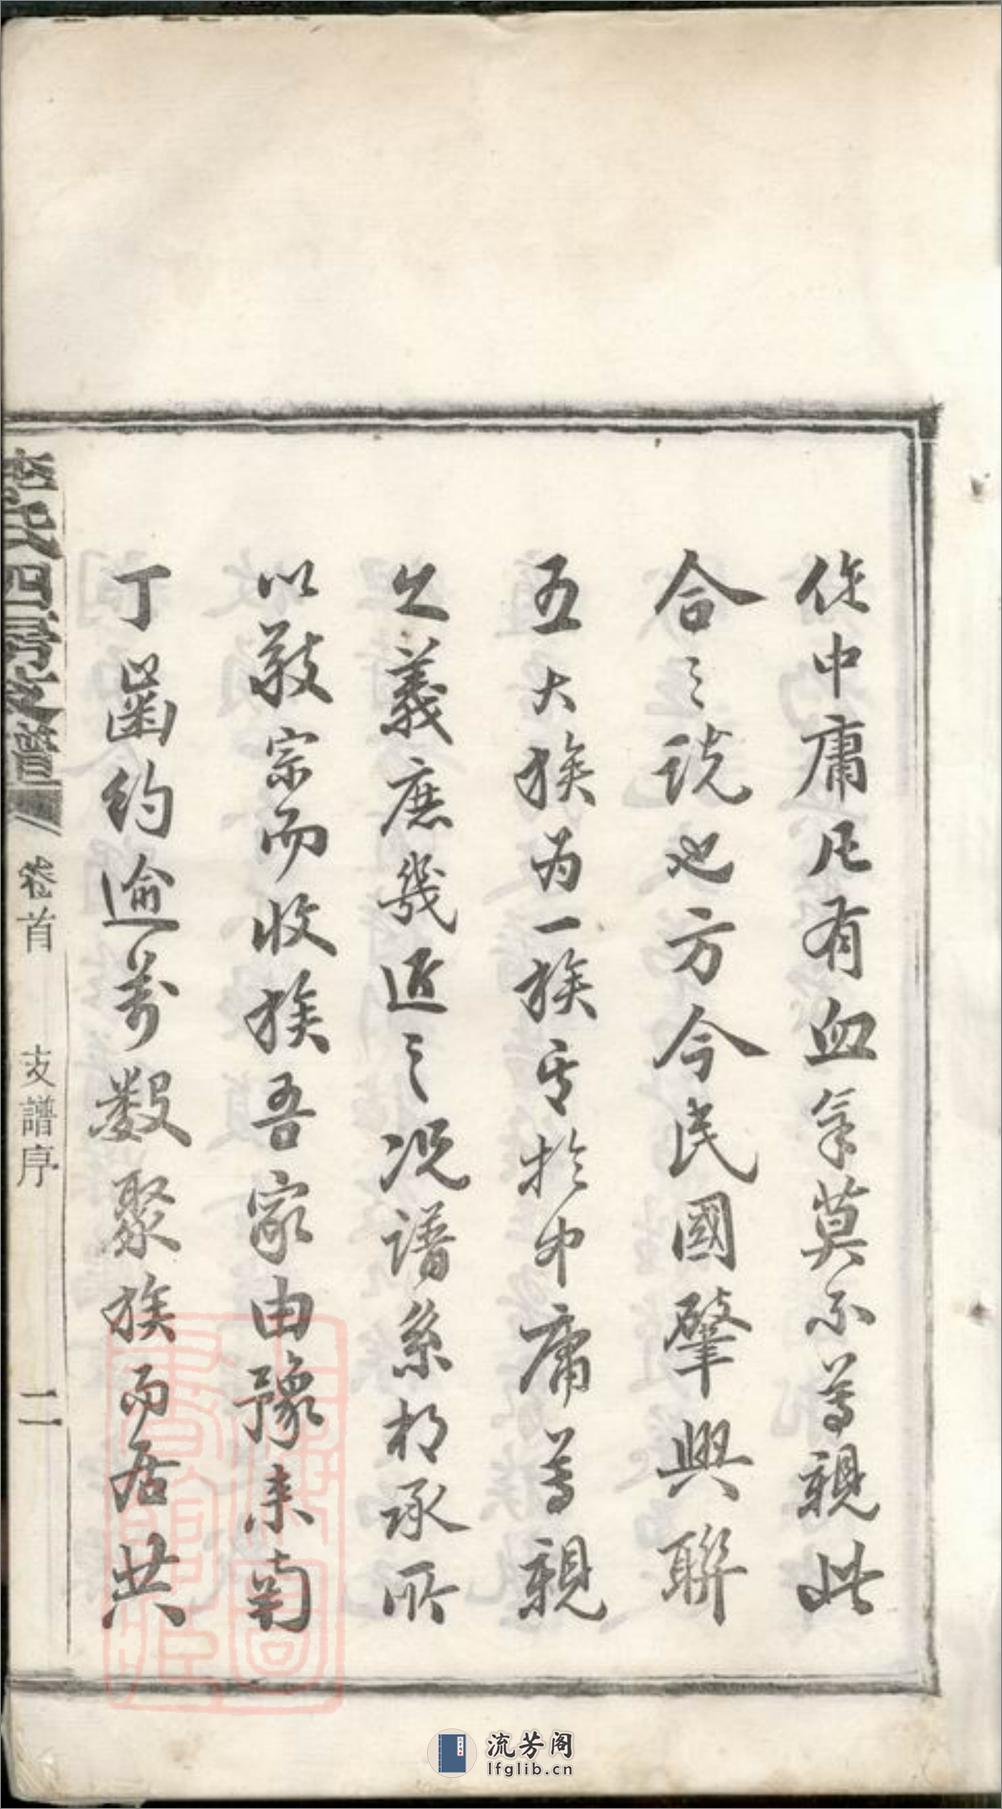 作中庸凡有血氣莫不尊親此
合之説也方今民國肇興聯
五大族為一族其於中庸尊親
之義庶幾近之況譜系相承所
以敬宗而收族吾家由豫来南
丁齒約逾万數聚族而居共
氏四房支譜
卷首
支譜序
二
流芳阁
lfglib.cn